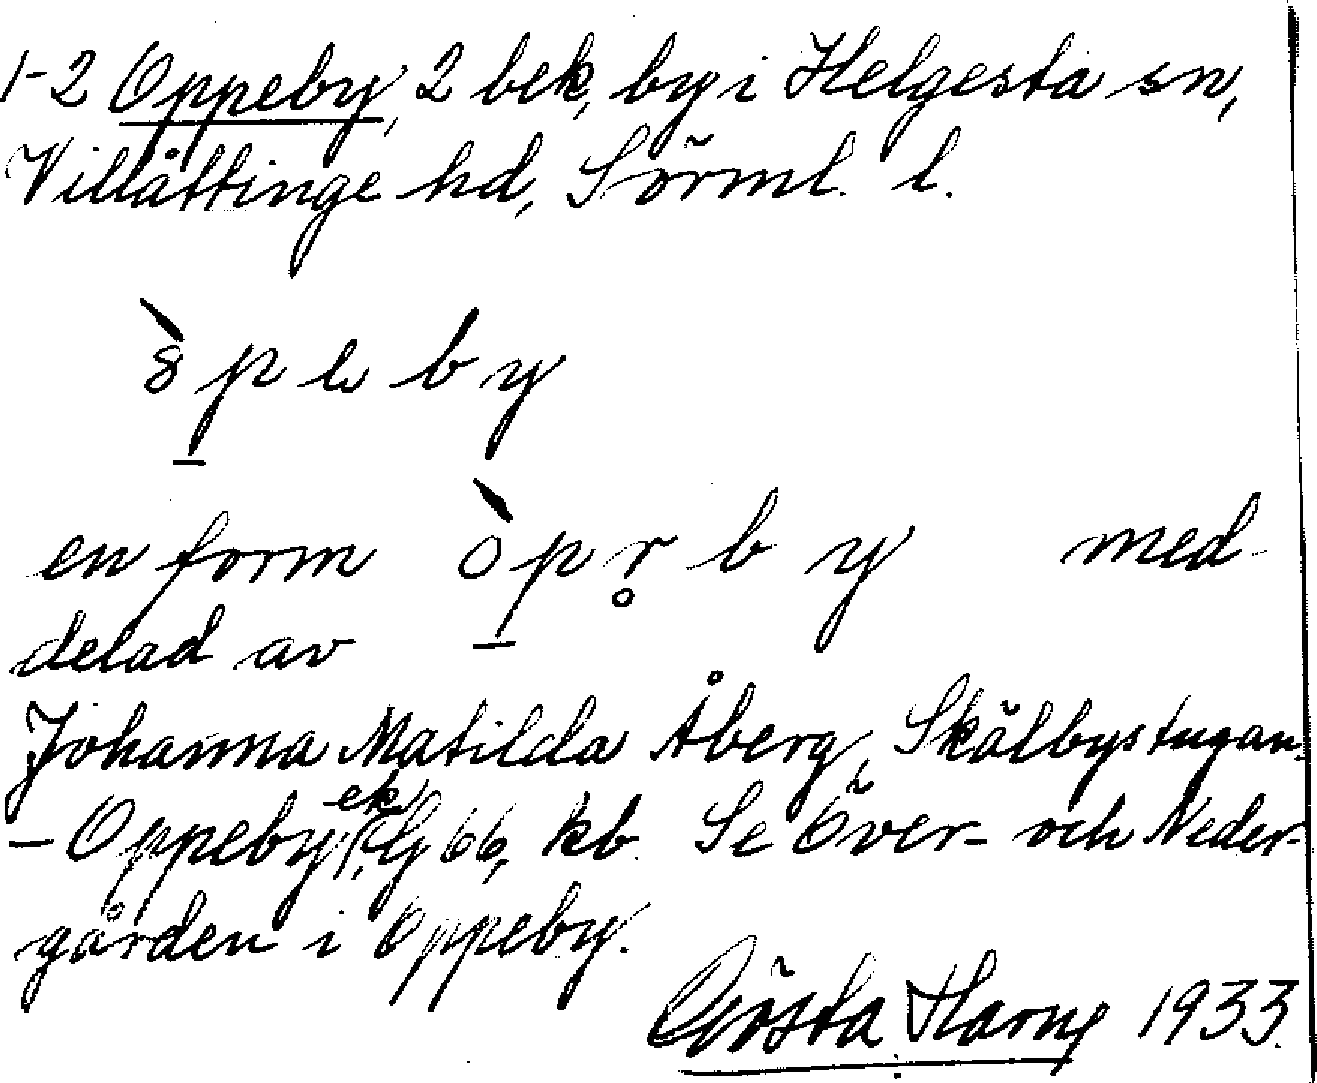 1-2 Oppeby, 2 bek, by i Helgesta sn,
Villåttinge hd, Sörml. l.
en form òpr̥by med-
delad av
Johanna Matilda Åberg, Skälbystugan
- Oppeby, ek G 66, kb. Se Över- och Neder-
gården i Oppeby.
Gösta Harng 1933.